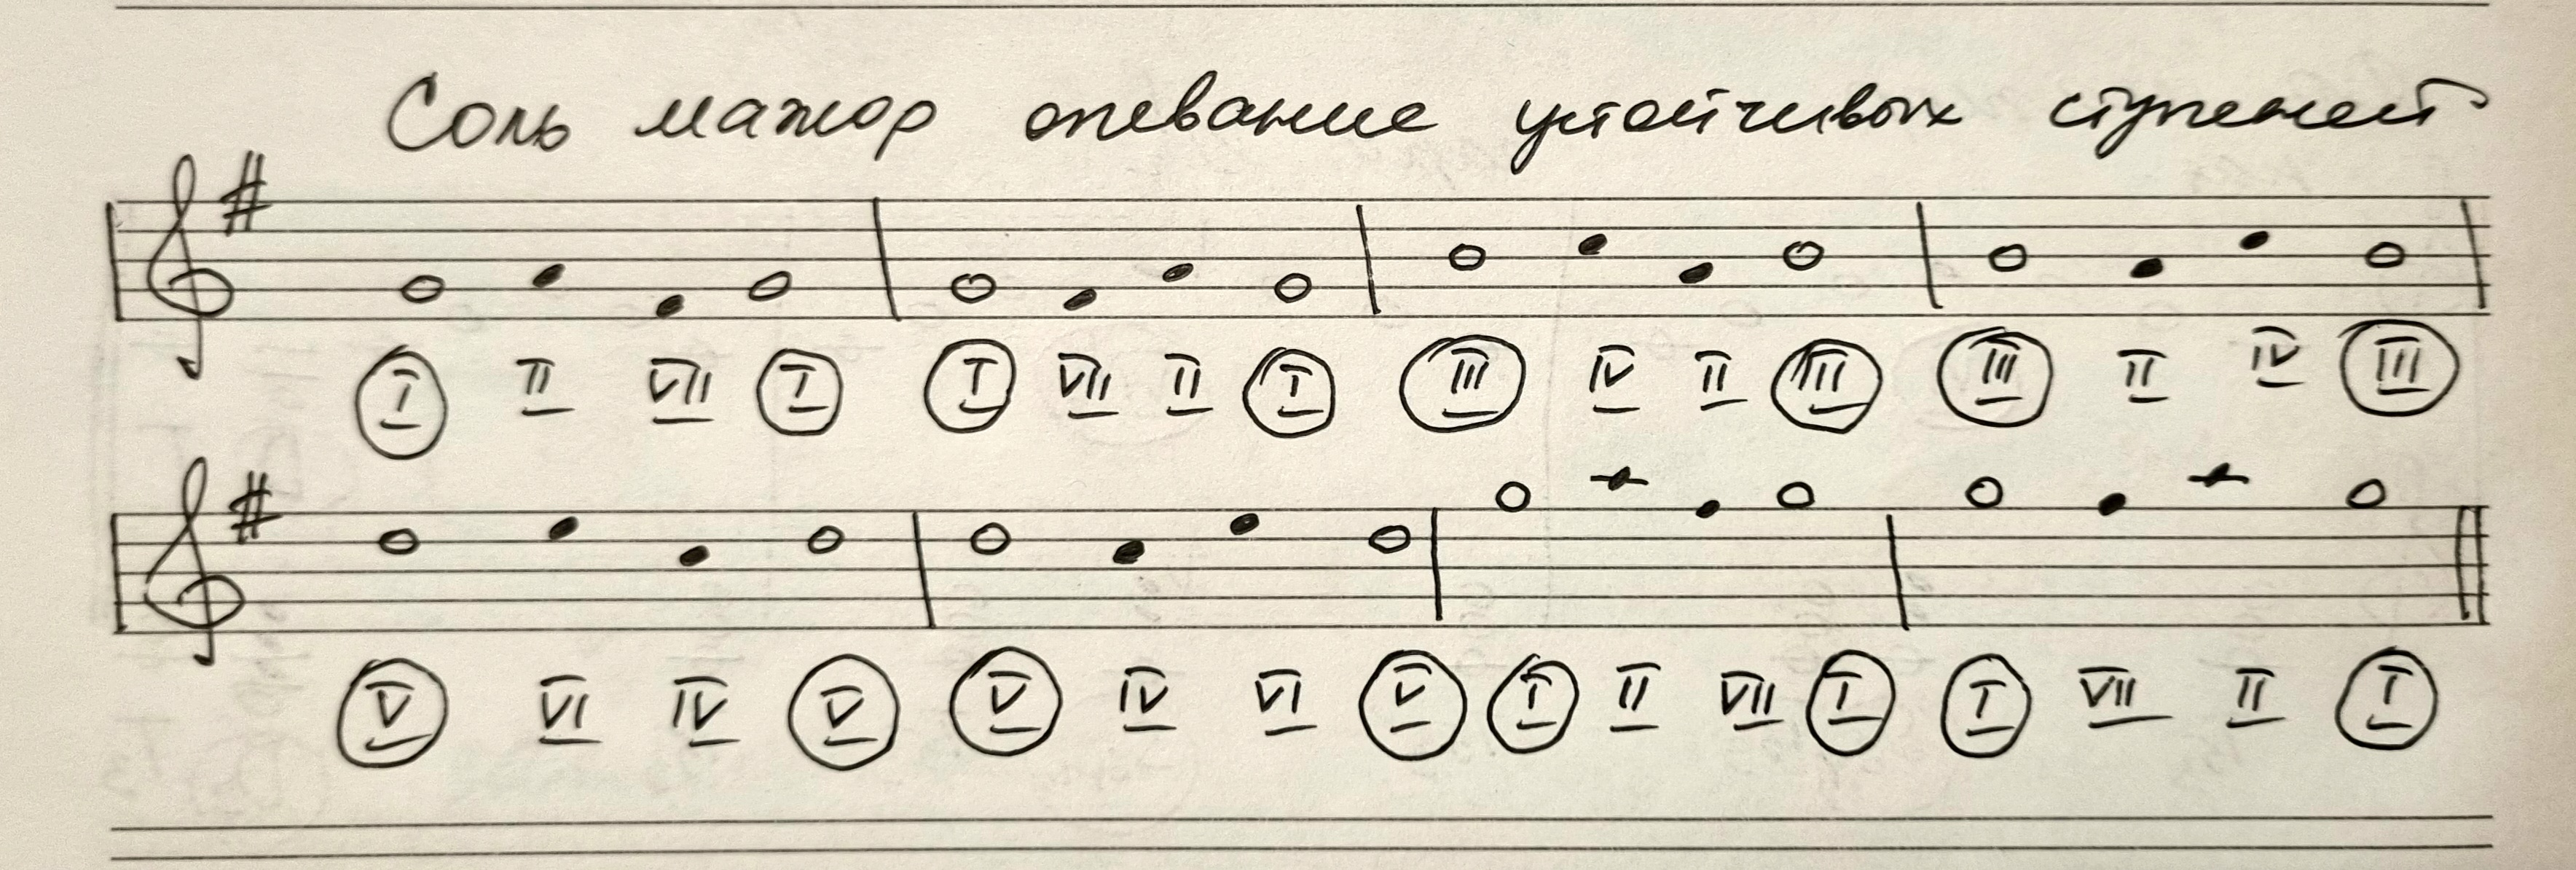 Соль мажор опевание устойчивых ступеней
I II VII I I VII II I III IV II III III II IV III
V VI IV V V IV VI V I II VII I I VII II I